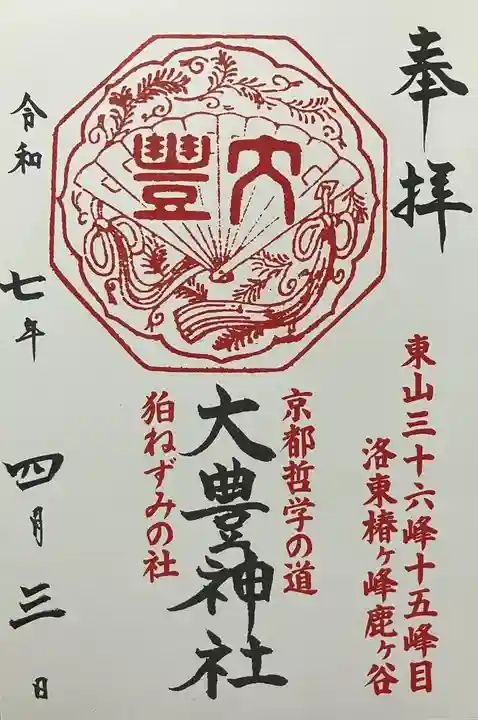 奉拝
東山三十六峰十五峰目
洛東椿ヶ峰鹿ヶ谷
大豐
京都哲学の道
大豊神社
狛ねずみの社
令和七年四月三日